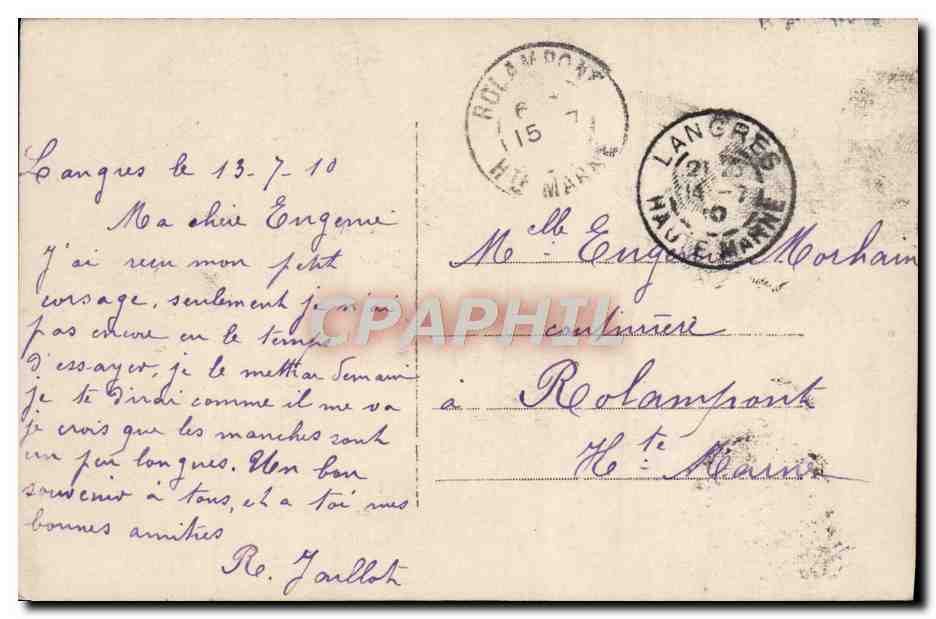 Langres le 13-7-10
Ma chère Eugenie
J'ai reçu mon petit
corsage, seulement je n'ai
pas encore eu le temps
d'essayer, je le mettrai demain
je te dirai comme il me va
je crois que les manches sont
un peu longues. Un bon
souvenir à tous, et a toi mes
bonnes amitiés
R. Jaillot
ROLAMPONT
6
15 7
HTE MARNE
LANGRES
21
14 - 7
10
HAUTE-MARNE
Melle Eugénie Morhain
couturière
à Rolampont
Hte Marne
CPAPHIL